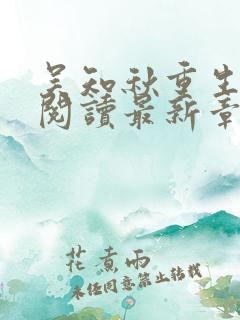 吴知秋重生
閱讀最新章
花煮雨
未经同意禁止转载